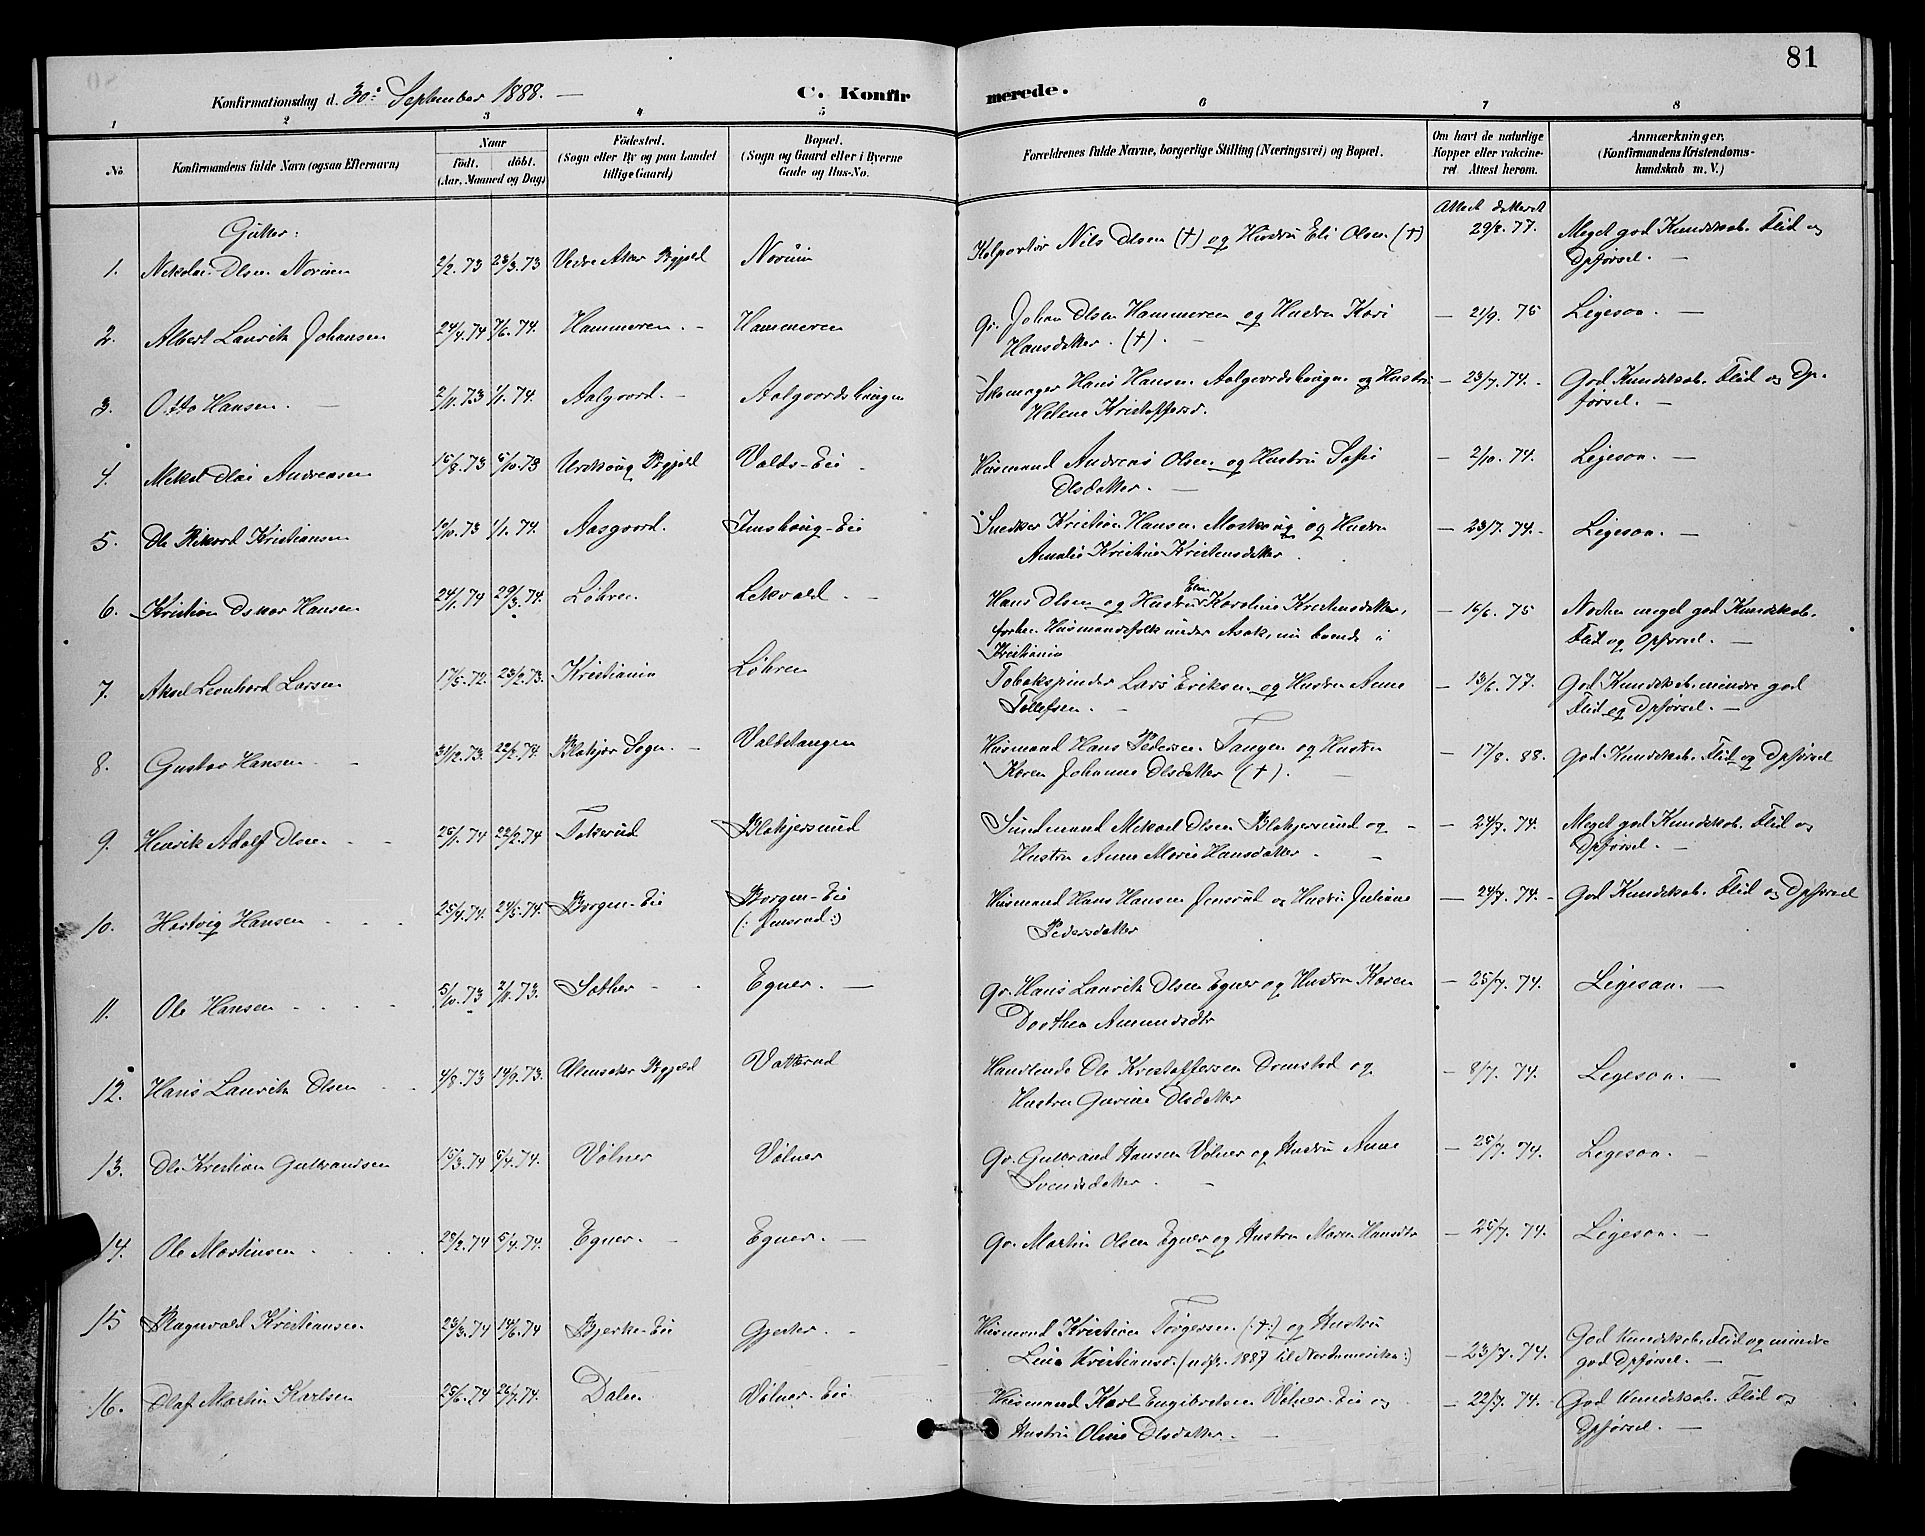 81
Konfirmationsdag d. 30te September 1888. —
C. Konfir
merede.
1 2 3 4 5 6 7 8
No.
Konfirmandens fulde Navn (ogsaa Efternavn)
Naar
födt. döbt.
(Aar, Maaned og Dag)
Födested.
(Sogn eller By og paa Landet
tillige Gaard)
Bopæl.
(Sogn og Gaard eller i Byerne
Gade og Hus-No.
Forældrenes fulde Navne, borgerlige Stilling (Næringsvei) og Bopæl.
Om havt de naturlige
Kopper eller vakcine-
ret Attest herom.
Anmærkninger.
(Konfirmandens Kristendoms-
kundskab m. V.)
Gutter:
Attest dateret
1. Nikolai Olsen Norum 2/2.73 23/3.73 Vestre Aker Pgjeld Norum Kolportør Nils Olsen (†) og Hustru Eli Olsen (†) 29/8.77. Meget god Kundskab. Flid og
Opførsel. —
2. Albert Lauritz Johansen 24/4.74 7/6.74. Hammeren. – Hammeren Gr. Johan Olsen Hammeren og Hustru Kari — 21/9.75 Ligesaa. —
Hansdatter. (†). –
3. Otto Hansen. — 2/11.73 1/1.74. Aalgaard. – Aalgaardshaugen Skomager Hans Hansen Aalgaardshaugen og Hustru — 23/7.74. – God Kundskab. Flid og Op-
Helene Kristoffersd. førsel. —
4. Mikal Olai Andreasen 15/8.73 5/10.73 Urskoug Pgjeld Valds-Eie – Husmand Andreas Olsen og Hustru Sofie — 2/10.74. Ligesaa. —
Olsdatter. —
5. Ole Rikard Kristiansen 10/10.73 1/1.74. Aasgaard. Imshaug-Eie Snedker Kristian Hansen Moskoug og Hustru — 23/7.74. – Ligesaa. —
Amalie Kristine Kristensdatter
6. Kristian Osvar Hansen 24/1.74 29/3.74. Løhren Lekvold – Hans Olsen og Hustru Eline Karoline Kristensdatter, — 16/6.75 Noksaa meget god Kundskab.
forhen Husmandsfolk under Asak, nu boende i Flid og Opførsel. —
Kristiania
7. Aksel Leonhard Larsen 17/5.72. 23/2.73. Kristiania Løhren Tobakspinder Lars Eriksen og Hustru Anne — 13/6.77. God Kundskab. mindre god
Tollefsen. – Flid og Opførsel. —
8. Gustav Hansen. – 31/12.73. 22/2.74. Blakjær Sogn. – Valbstangen Husmand Hans Pedersen Tangen og Hustru — 17/8.88. God Kundskab. Flid og Opførsel
Karen Johanne Olsdatter (†). —
9. Henrik Adolf Olsen – – 25/1.74 22/2.74 Tokerud Blakjersund Sundmand Mikael Olsen Blakjersund og – — 24/7.74. Meget god Kundskab. Flid og
Hustru Anne Marie Hansdatter. – Opførsel. —
10. Hartvig Hansen – – – 25/4.74. 24/5.74. Borgen-Eie Borgen-Eie Husmand Hans Hansen Jensrud og Hustru Juliane — 24/7.74. – God Kundskab. Flid og Opførsel
(: Jensrud :) Pedersdatter
11. Ole Hansen – – – – 5/10.73 2/11.73. Sother – – Egner. — Gr. Hans Lauritz Olsen Egner og Hustru Karen — 25/7.74. Ligesaa. —
Dorthea Amundsdtr
12. Hans Lauritz Olsen – – 4/8.73 14/9.73. Ulensaker Pgjeld Valterud Handlende Ole Kristoffersen Omstad og — 8/7.74. Ligesaa. —
Hustru Gurine Olsdatter
13. Ole Kristian Gulbrandsen 15/3.74 5/4.74. Vølner Vølner Gr. Gulbrand Hansen Vølner og Hustru Anne — 25/7.74. Ligesaa. –
Svendsdatter. –
14. Ole Martinsen – – – 25/2.74 5/4.74. Egner – Egner. — Gr. Martin Olsen Egner og Hustru Maren Hansdtr — 25/7.74. Ligesaa. –
15 Ragnvald Kristiansen 23/3.74 14/6.74 Bjerke-Eie Gjerter. – Husmand Kristian Torgersen (:†:) og Hustru
Lina Kristiansd. (udfl. 1887 til Nordamerika:) — 23/7.74. God Kundskab. Flid og mindre
god Opførsel. —
16. Olaf Martin Karlsen 25/6.74 26/7.74. Dalen Vølner-Eie Husmand Karl Engebretsen Vølner-Eie og — 22/7.74. God Kundskab. Flid og
Hustru Oline Olsdatter. — Opførsel. —